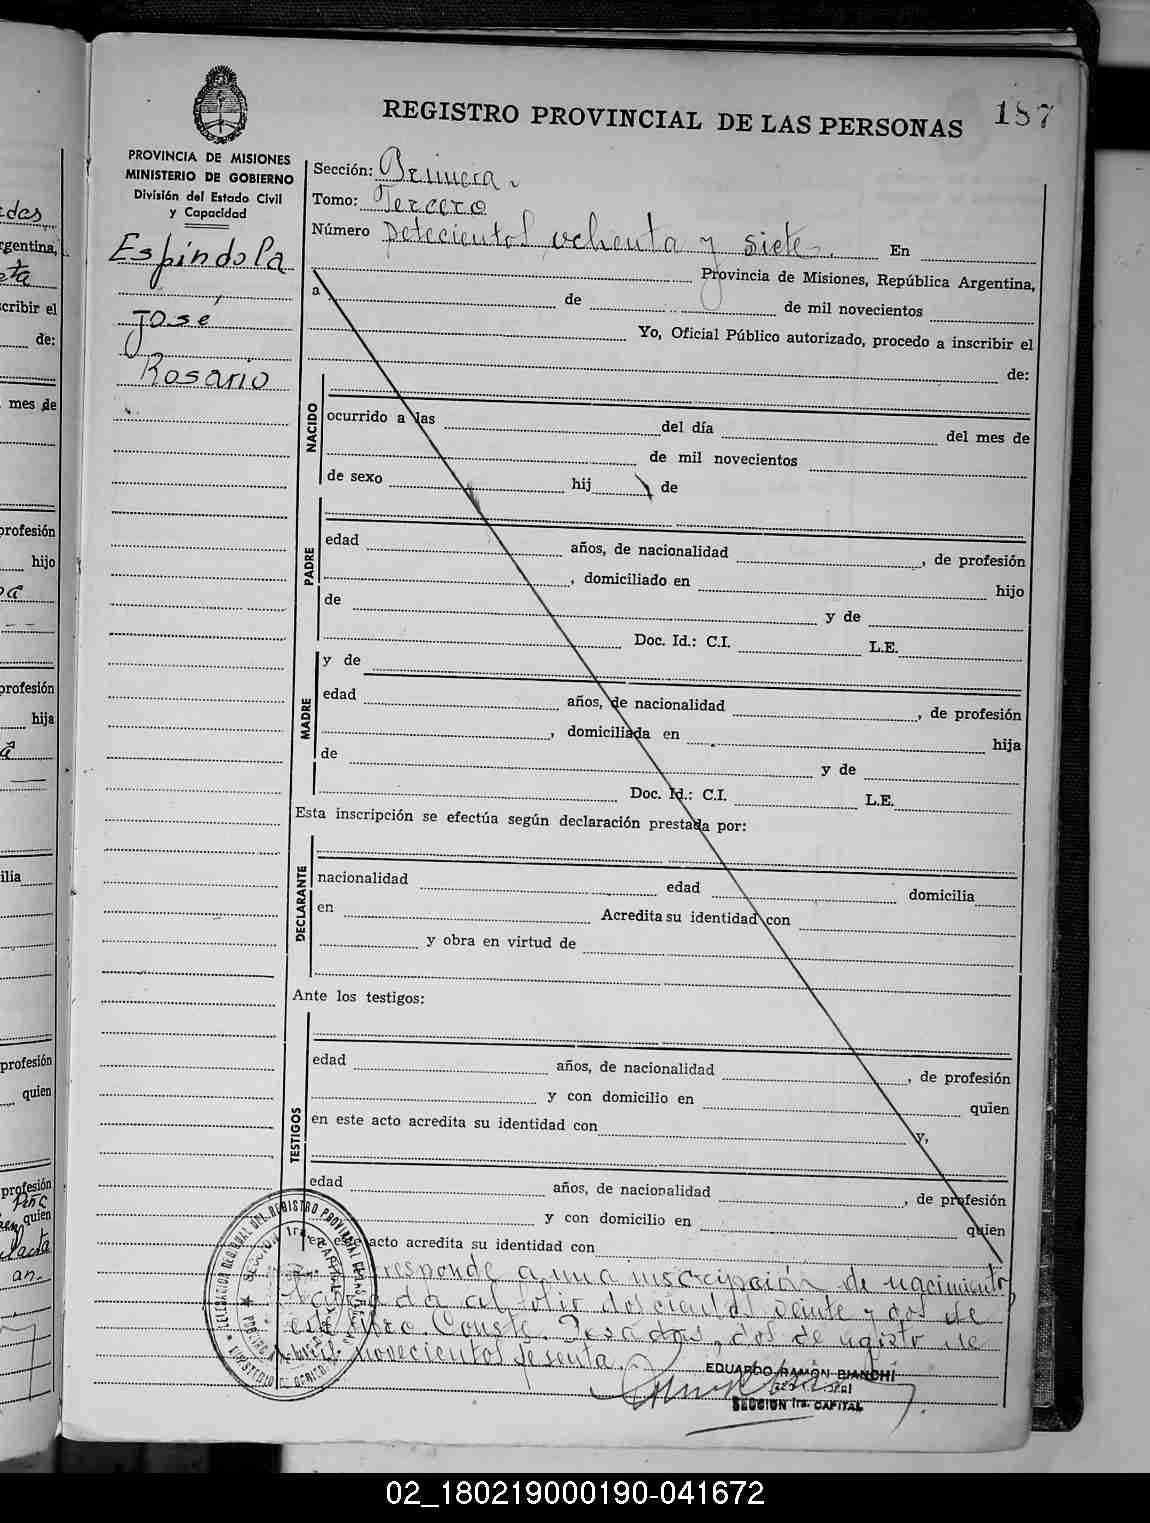 187
REGISTRO PROVINCIAL DE LAS PERSONAS
PROVINCIA DE MISIONES
MINISTERIO DE GOBIERNO
División del Estado Civil
y Capacidad
Espíndola
José
Rosario
Sección: Primera
Tomo: Tercero
Número Setecientos ochenta y siete. En
Provincia de Misiones, República Argentina,
a de de mil novecientos
Yo, Oficial Público autorizado, procedo a inscribir el
de:
NACIDO
ocurrido a las del día del mes de
de mil novecientos
de sexo hij de
PADRE
edad años, de nacionalidad , de profesión
, domiciliado en hijo
de y de
Doc. Id.: C.I. L.E.
MADRE
y de
edad años, de nacionalidad , de profesión
, domiciliada en hija
de y de
Doc. Id.: C.I. L.E.
Esta inscripción se efectúa según declaración prestada por:
DECLARANTE
nacionalidad edad domicilia
en Acredita su identidad con
y obra en virtud de
Ante los testigos:
TESTIGOS
edad años, de nacionalidad , de profesión
y con domicilio en quien
en este acto acredita su identidad con y,
edad años, de nacionalidad , de profesión
y con domicilio en quien
este acto acredita su identidad con
responde a una inscripción de nacimiento,
al folio doscientos veinte y dos de
este libro. Conste. Posadas, dos de agosto de
mil novecientos sesenta.
EDUARDO RAMÓN BIANCHI
SECCION 1ra. CAPITAL
02_180219000190-041672